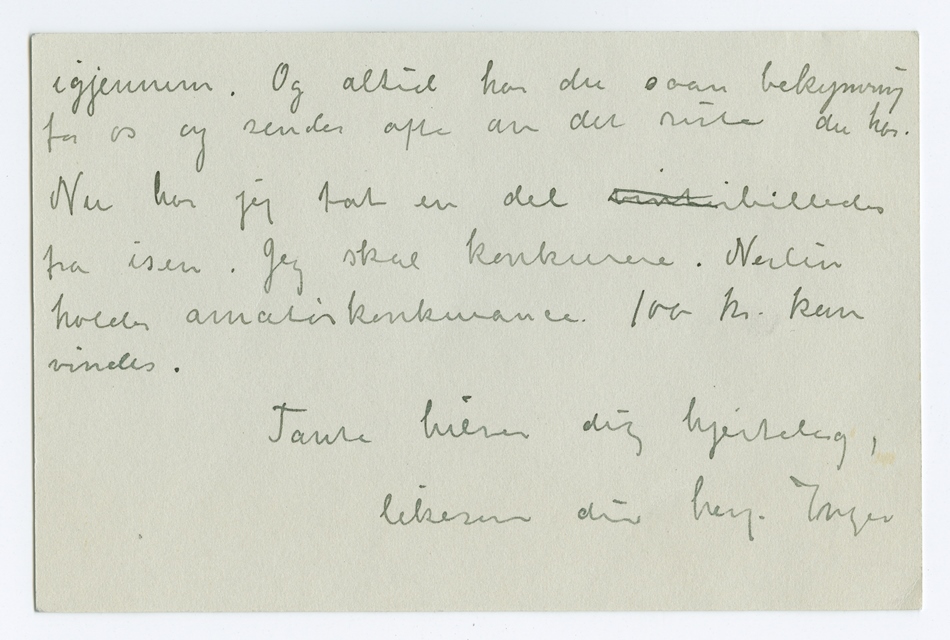 igjennem. Og altid har du saan bekymring
for os og sender ofte av det siste du har.
Nu har jeg tat en del vinterbilleder
fra isen. Jeg skal konkurere. Nerlien
holder amatørkonkurance. 100 kr. kan
vindes.
Tante hilser dig hjerteleg,
likesom din heng. Inger